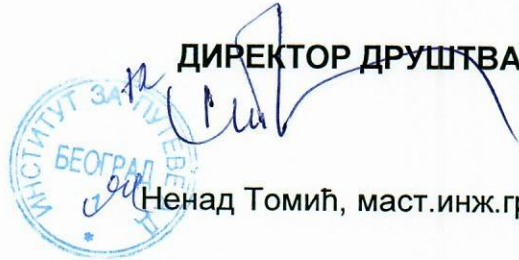 ДИРЕКТОР ДРУШТВА
ИНСТИТУТ ЗА ПУТЕВЕ
БЕОГРАД
Ненад Томић, маст.инж.гр